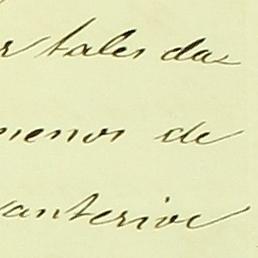 r tales da
menos de
anterior